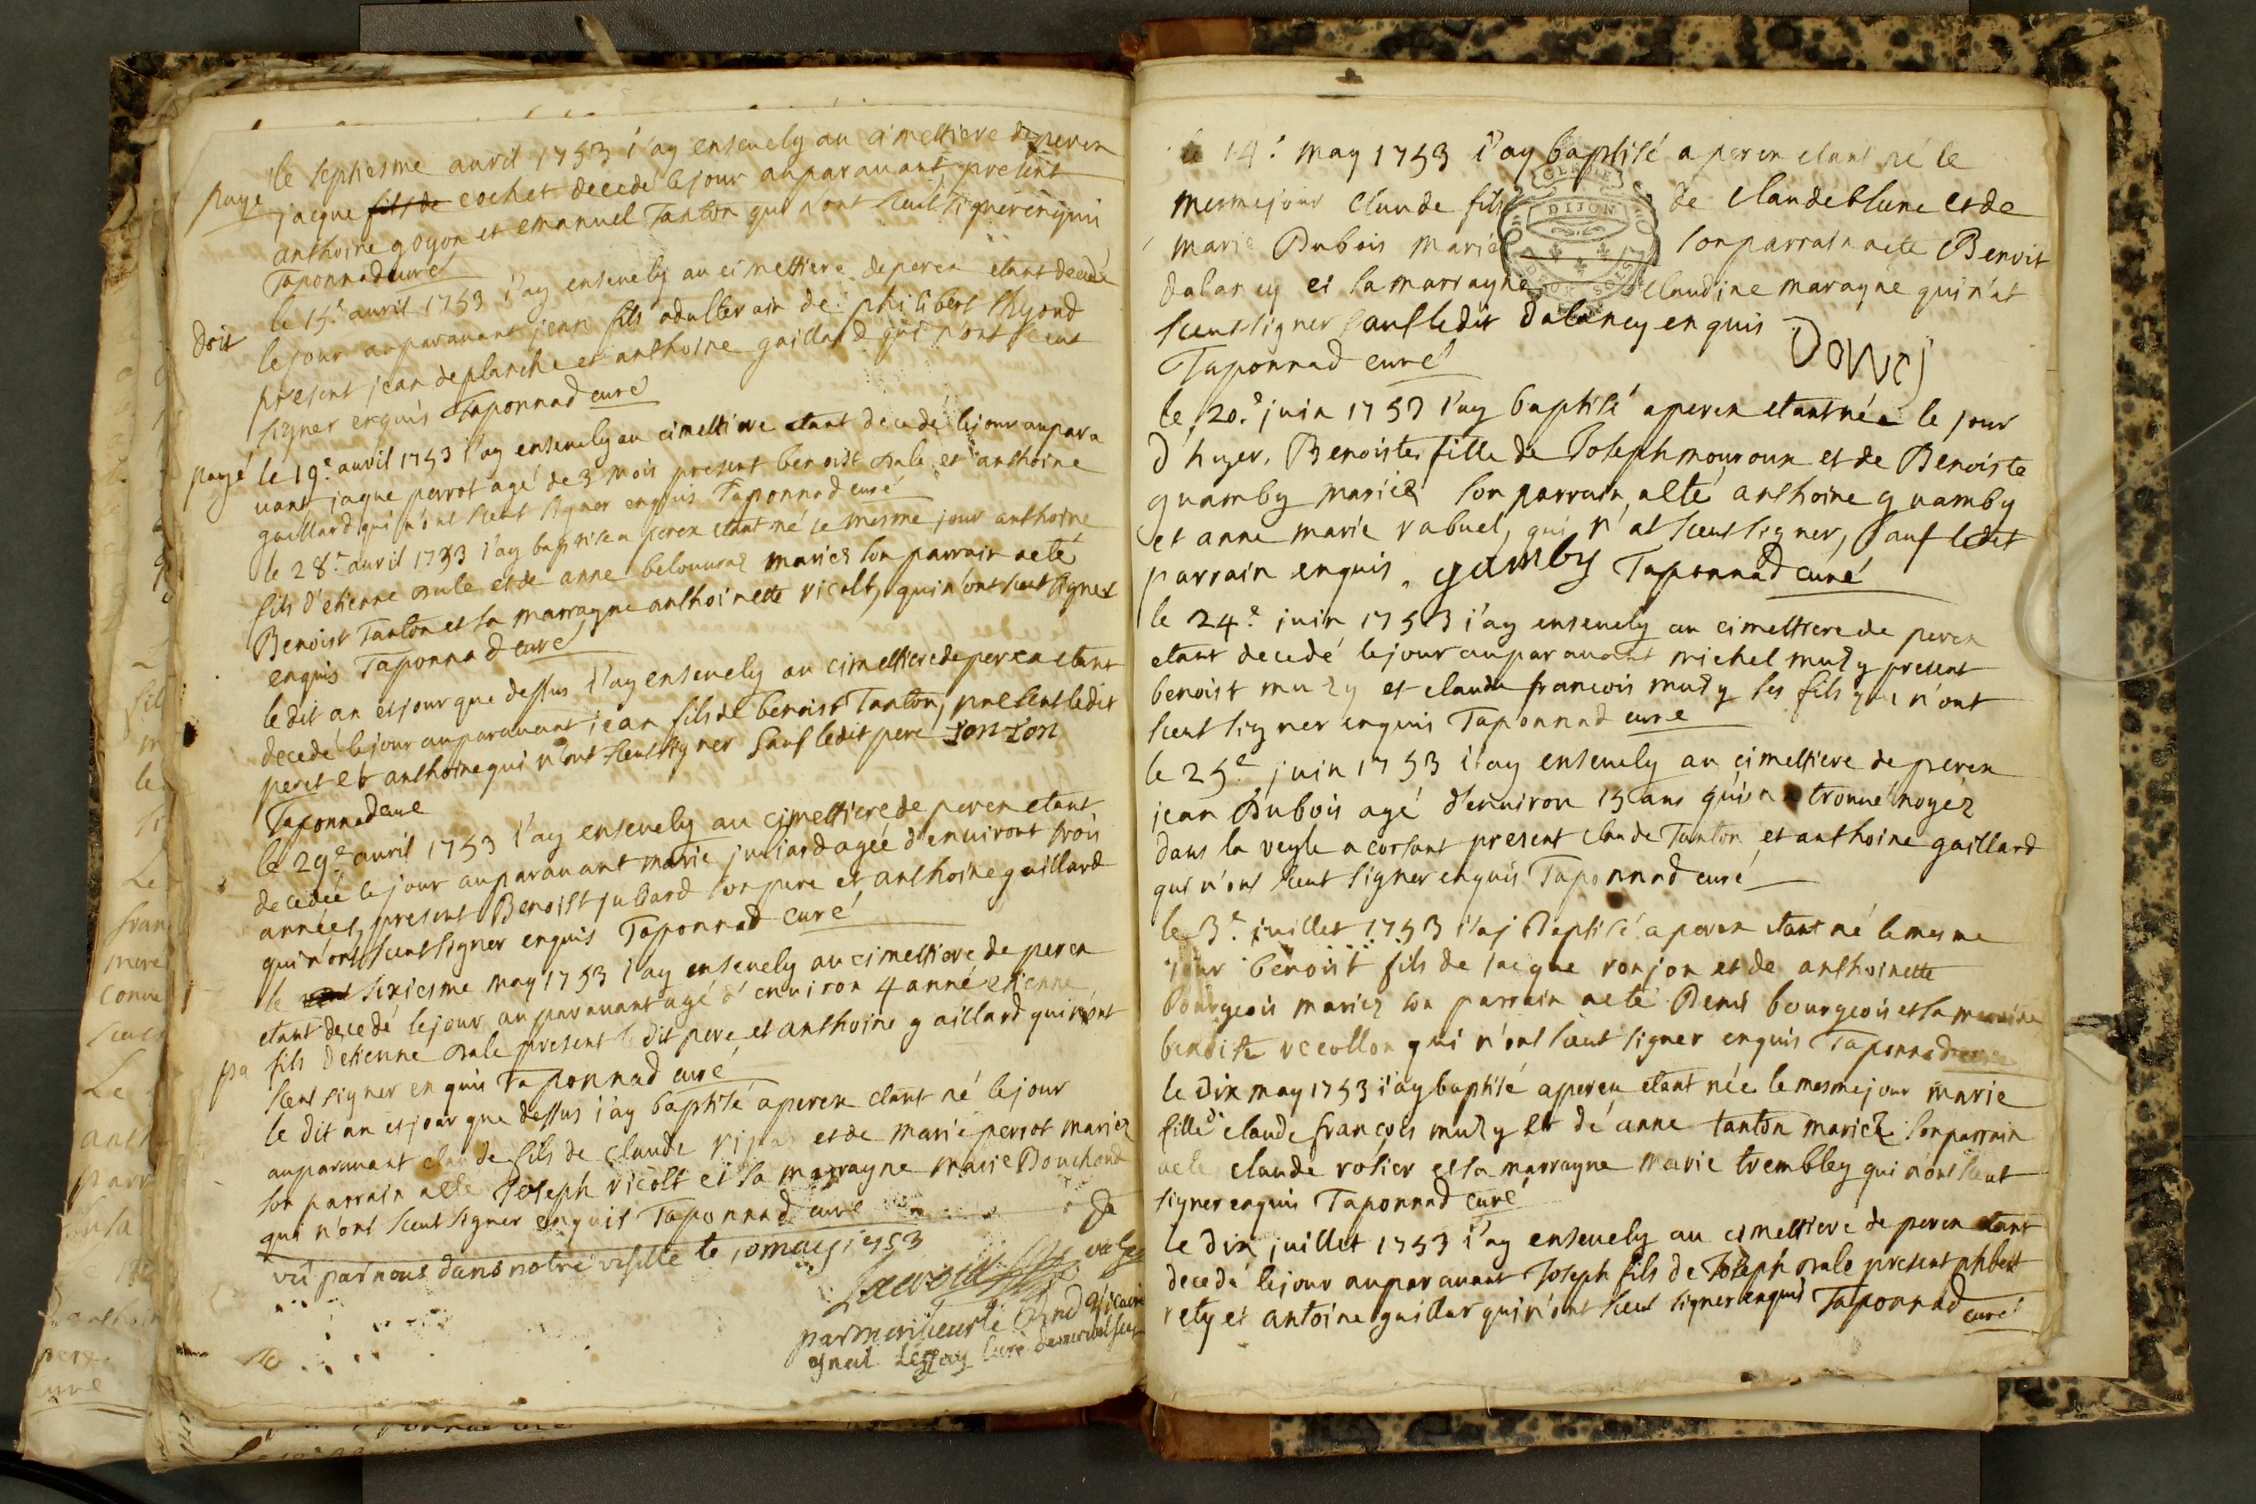 le septiesme avril 1753 i'ay ensevely au cimettiere de peren
payé jacque fils de cochet decedé le jour auparavant, present
anthoine goyon et emanuel Tanton qui n'ont sceut signer enquis
Taponnad curé
le 15e avril 1753 i'ay ensevely au cimettiere de peren etant decedé
doit le jour auparavant jean fils adulterain de philibert thyond
present jean deplanche et anthoine gaillard qui n'ont sceut
signer enquis Taponnad curé
payé le 19e avril 1753 i'ay ensevely au cimettiere etant decedé le jour aupara
vant jaque perrot agé de 3 mois present benoist sale et anthoine
gaillard qui n'ont sceut signer enquis Taponnad curé
le 28e avril 1753 i'ay baptisé a peren etant né le mesme jour anthoine
fils d'etienne sale et de anne mariez son parrain aeté
Benoist Tanton et sa marragne anthoinette ricolt, qui n'ont sceut signer
enquis Taponnad curé
le dit an et jour que dessus i'ay ensevely au cimettiere de peren etant
decedé le jour auparavant jean fils de benoist Tanton, present ledit
peret et anthoine qui n'ont sceut signer sauf ledit pere
Taponnad curé
le 29e avril 1753 i'ay ensevely au cimettiere de peren etant
decedée le jour auparavant marie juliard agée d'environt trois
années, present Benoist juliard son pere et anthoine gaillard
qui n'ont sceut signer enquis Taponnad curé
le sixiesme may 1753 i'ay ensevely au cimettiere de peren
etant decedé le jour auparavant agé d'environ 4 anné etienne
pa fils d'etienne sale present le dit pere et anthoine gaillard qui n'ont
sceut signer enquis Taponnad curé
le dit an et jour que dessus i'ay baptisé a peren etant né le jour
auparavant claude fils de claude et de marie perrot mariez
son parrain aeté Joseph ricolt et sa marrayne marie Bouchard
qui n'ont sceut signer enquis Taponnad curé
vû par nous dans notre visitte le 10 may 1753
par monsieur le grand vicaire
le 14e may 1753 i'ay baptisé a peren etant né le
mesme jour claude fils de claude blune et de
marie Dubois mariez son parrain aeté Benoit
dalancy et sa marrayne claudine maragne qui n'at
sceut signer sauf ledit dalancy enquis
DIJON
Taponnad curé
le 20e juin 1753 i'ay baptisé a peren etant née le jour
d'hyer, Benoiste fille de Joseph mouroux et de Benoiste
guamby mariez son parrain aeté anthoine guamby
et anne marie rabuel, qui n'at sceut signer, sauf ledit
parrain enquis. gamby Taponnad curé
le 24e juin 1753 i'ay ensevely au cimettiere de peren
etant decedé le jour auparavant michel muzy present
benoist muzy et claude francois muzy ses fils qui n'ont
sceut signer enquis Taponnad curé
le 25e juin 1753 i'ay ensevely au cimettiere de peren
jean Dubois agé d'environ 15 ans qu'on a trouvé noyez
dans la veyle a corsant present claude Tanton et anthoine gaillard
qui n'ont sceut signer enquis Taponnad curé
le 3e juillet 1753 i'aj Baptisé a peren etant né le mesme
jour benoist fils de jacque ronjon et de anthoinette
Bourgeois mariez son parrain aeté Denis bourgeois et sa marraine
benoiste qui n'ont sceut signer enquis Taponnad curé
le dix may 1753 i'ay baptisé a peren etant née le mesme jour marie
fille de claude francois muzy et de anne tanton mariez son parrain
aeté claude rosier et sa marrayne marie trembley qui n'ont sceut
signer enquis Taponnad curé
le dix juillet 1753 i'ay ensevely au cimettiere de peren etant
decedé le jour auparavant Joseph fils de Joseph sale present phibert
rety et antoine gaillar qui n'ont sceut signer enquis Taponnad
curé